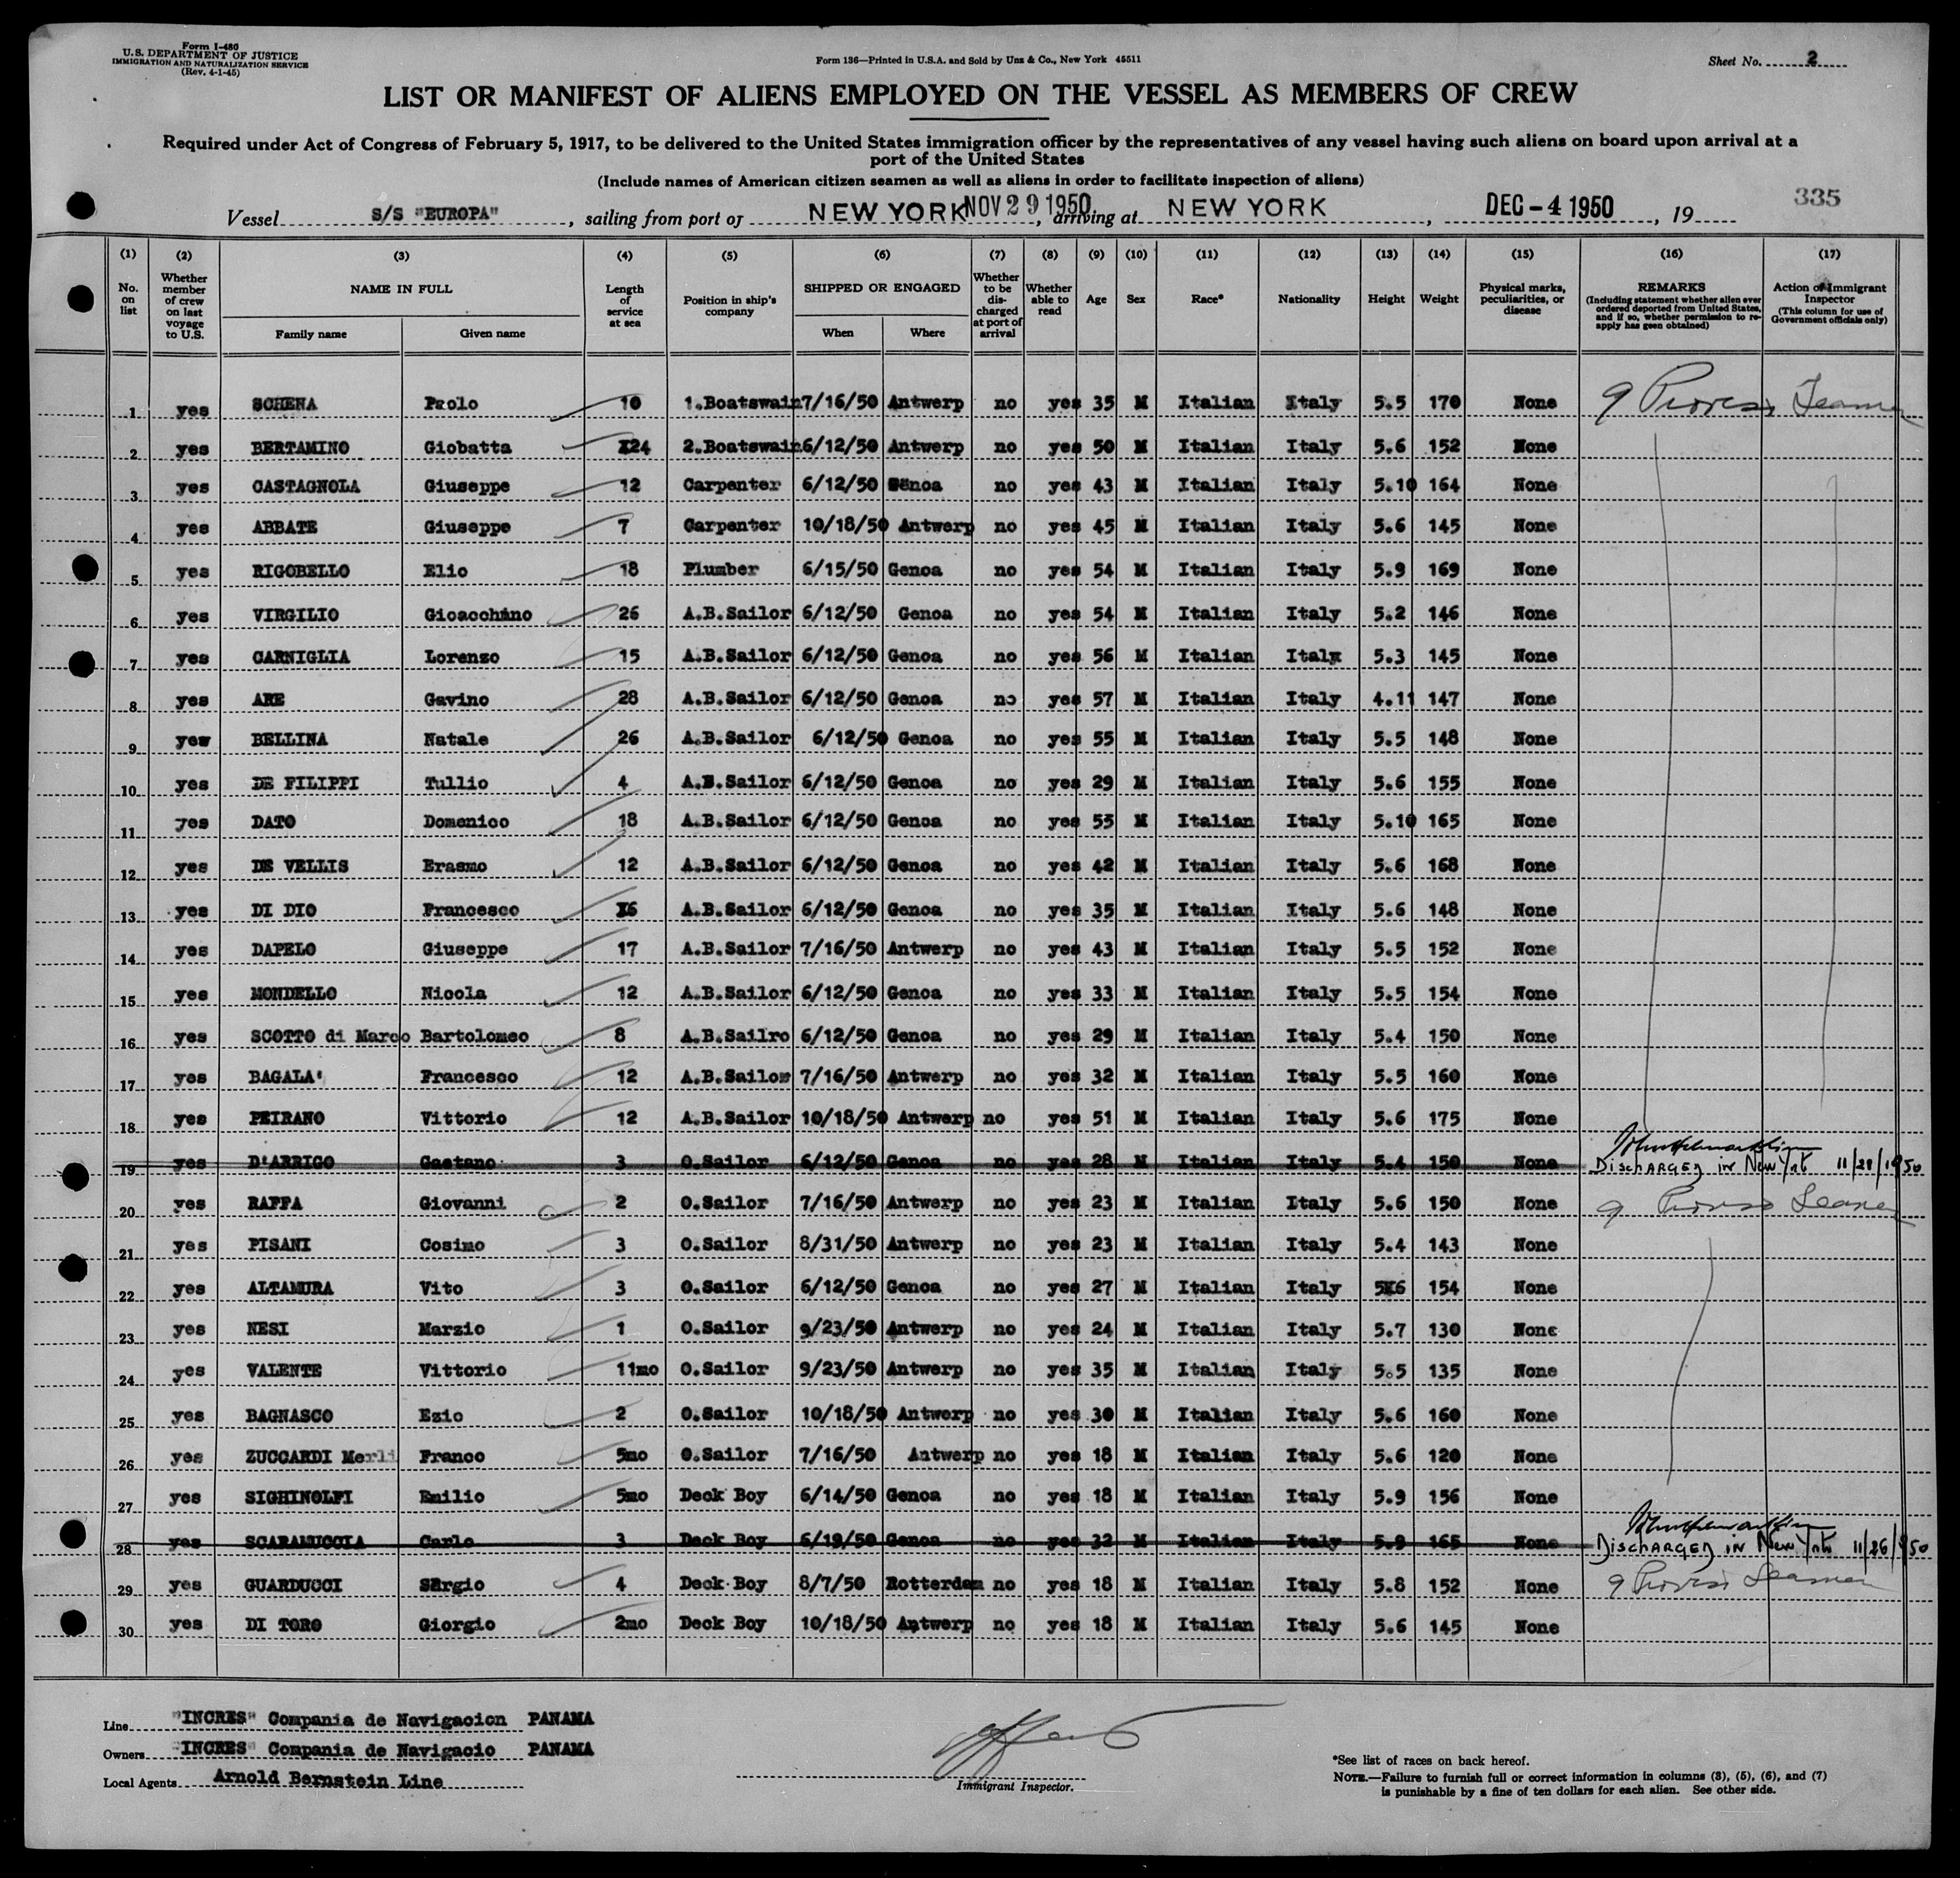 Form I-480
U.S. DEPARTMENT OF JUSTICE
IMMIGRATION AND NATURALIZATION SERVICE
(Rev. 4-1-45)
Form 136—Printed in U.S.A. and Sold by Unz & Co., New York 45511
Sheet No. 2
LIST OR MANIFEST OF ALIENS EMPLOYED ON THE VESSEL AS MEMBERS OF CREW
Required under Act of Congress of February 5, 1917, to be delivered to the United States immigration officer by the representatives of any vessel having such aliens on board upon arrival at a
port of the United States
(Include names of American citizen seamen as well as aliens in order to facilitate inspection of aliens)
335
Vessel S/S "EUROPA", sailing from port of NEW YORK NOV 29 1950, arriving at NEW YORK, DEC -4 1950, 19
(1) No. on list (2) Whether member of crew on last voyage to U.S. (3) NAME IN FULL Family name Given name (4) Length of service at sea (5) Position in ship's company (6) SHIPPED OR ENGAGED When Where (7) Whether to be discharged at port of arrival (8) Whether able to read (9) Age (10) Sex (11) Race* (12) Nationality (13) Height (14) Weight (15) Physical marks, peculiarities, or disease (16) REMARKS (Including statement whether alien ever ordered deported from United States, and if so, whether permission to re-apply has geen obtained) (17) Action of Immigrant Inspector (This column for use of Government officials only)
1 yes SCHENA Paolo 10 1.Boatswain 7/16/50 Antwerp no yes 35 M Italian Italy 5.5 170 None 9 Proviso Seamen
2 yes BERTAMINO Giobatta 24 2.Boatswain 6/12/50 Antwerp no yes 50 M Italian Italy 5.6 152 None
3 yes CASTAGNOLA Giuseppe 12 Carpenter 6/12/50 Genoa no yes 43 M Italian Italy 5.10 164 None
4 yes ABBATE Giuseppe 7 Carpenter 10/18/50 Antwerp no yes 45 M Italian Italy 5.6 145 None
5 yes RIGOBELLO Elio 18 Plumber 6/15/50 Genoa no yes 54 M Italian Italy 5.9 169 None
6 yes VIRGILIO Gioacchino 26 A.B.Sailor 6/12/50 Genoa no yes 54 M Italian Italy 5.2 146 None
7 yes CARNIGLIA Lorenzo 15 A.B.Sailor 6/12/50 Genoa no yes 56 M Italian Italy 5.3 145 None
8 yes ARE Gavino 28 A.B.Sailor 6/12/50 Genoa no yes 57 M Italian Italy 4.11 147 None
9 yew BELLINA Natale 26 A.B.Sailor 6/12/50 Genoa no yes 55 M Italian Italy 5.5 148 None
10 yes DE FILIPPI Tullio 4 A.B.Sailor 6/12/50 Genoa no yes 29 M Italian Italy 5.6 155 None
11 yes DATO Domenico 18 A.B.Sailor 6/12/50 Genoa no yes 53 M Italian Italy 5.10 165 None
12 yes DE VELLIS Erasmo 12 A.B.Sailor 6/12/50 Genoa no yes 42 M Italian Italy 5.6 168 None
13 yes DI DIO Francesco 16 A.B.Sailor 6/12/50 Genoa no yes 35 M Italian Italy 5.6 148 None
14 yes DAPELO Giuseppe 17 A.B.Sailor 7/16/50 Antwerp no yes 43 M Italian Italy 5.5 152 None
15 yes MONDELLO Nicola 12 A.B.Sailor 6/12/50 Genoa no yes 33 M Italian Italy 5.5 154 None
16 yes SCOTTO di Marco Bartolomeo 8 A.B.Sailro 6/12/50 Genoa no yes 29 M Italian Italy 5.4 150 None
17 yes BAGALA' Francesco 12 A.B.Sailor 7/16/50 Antwerp no yes 32 M Italian Italy 5.5 160 None
18 yes PEIRANO Vittorio 12 A.B.Sailor 10/18/50 Antwerp no yes 51 M Italian Italy 5.6 175 None
19 yes D'ARRIGO Gaetano 3 O.Sailor 6/12/50 Genoa no yes 28 M Italian Italy 5.4 150 None DISCHARGED IN New York 11/28/1950
20 yes RAFFA Giovanni 2 O.Sailor 7/16/50 Antwerp no yes 23 M Italian Italy 5.6 150 None 9 Proviso Seamen
21 yes PISANI Cosimo 3 O.Sailor 8/31/50 Antwerp no yes 23 M Italian Italy 5.4 143 None
22 yes ALTAMURA Vito 3 O.Sailor 6/12/50 Genoa no yes 27 M Italian Italy 5X6 154 None
23 yes NESI Marzio 1 O.Sailor 9/23/50 Antwerp no yes 24 M Italian Italy 5.7 130 None
24 yes VALENTE Vittorio 11mo O.Sailor 9/23/50 Antwerp no yes 35 M Italian Italy 5.5 135 None
25 yes BAGNASCO Ezio 2 O.Sailor 10/18/50 Antwerp no yes 30 M Italian Italy 5.6 160 None
26 yes ZUCCARDI Merli Franco 5mo O.Sailor 7/16/50 Antwerp no yes 18 M Italian Italy 5.6 120 None
27 yes SIGHINOLFI Emilio 5mo Deck Boy 6/14/50 Genoa no yes 18 M Italian Italy 5.9 156 None
28 yes SCARAMUCCIA Carlo 3 Deck Boy 6/19/50 Genoa no yes 32 M Italian Italy 5.9 165 None DISCHARGED IN New York 11/26/1950
29 yes GUARDUCCI Sergio 4 Deck Boy 8/7/50 Rotterdam no yes 18 M Italian Italy 5.8 152 None 9 Proviso Seamen
30 yes DI TORO Giorgio 2mo Deck Boy 10/18/50 Antwerp no yes 18 M Italian Italy 5.6 145 None
Line "INCRES" Compania de Navigacion PANAMA
Owners "INCRES" Compania de Navigacio PANAMA
Local Agents Arnold Bernstein Line
Immigrant Inspector.
*See list of races on back hereof.
NOTE.—Failure to furnish full or correct information in columns (3), (5), (6), and (7)
is punishable by a fine of ten dollars for each alien. See other side.